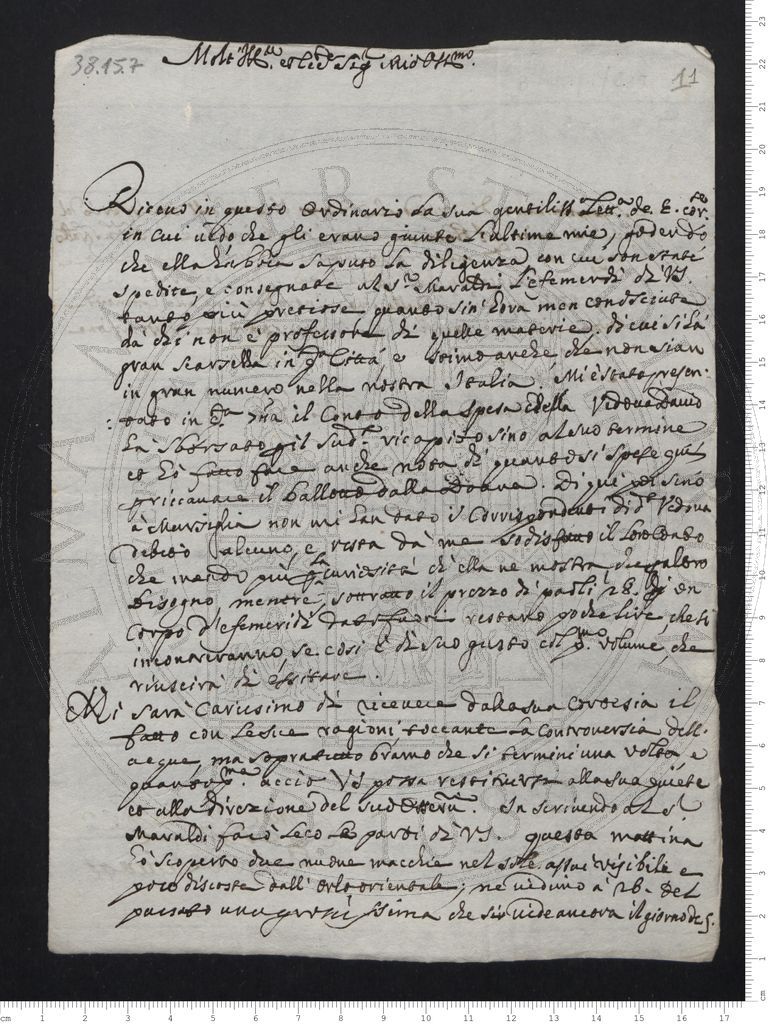 38.15.7
11
Molt Ill.re et Ecc.te Sig.r Mio Oss.mo
Riceuo in questo ordinario la sua gentiliss.a Lett.a de 2. cor.te
in cui uedo che gli erano giunte l'altime mie, godendo
che ella habbia saputo la diligenza con cui son state
spedite, e consegnate al S.r Maraldi l'efemeridi di VS.
tanto più pretiose quanto sin'hora men conosciute
da chi non è professore di quelle materie, di cui si hà
gran scarsella in q.a Città e stimo anche che non sian
in gran numero nella nostra Italia. Mi è stato presen:
tato in q.a
il Conto della spesa della Vedoua Dauid
hà sborsato p il sud.o ricapito sino al suo termine
et hò fatto fare anche nota di quanto si spese quì
p riccauare il ballotto dalla Doana. Di quì poi sino
à Marsiglia non mi han dato i Corrispondenti di d.a Vedoua
debito alcuno, e resta da me sodisfatto il
che mando più p curiosità ch'ella ne mostra che p altro
disegno, mentre, sottratto il prezzo di paoli 28. di un
corpo d'efemeridi restano poche lire che si
incontreranno se così è di suo gusto col p.mo volume, che
riuscirà di essitare.
Mi sarà Carissimo di riceuere dalla sua cortesia il
fatto con le sue ragioni toccante la controuersia dell'
acque, ma sopratutto bramo che si termini una uolta, e
quanto p.ma acciò VS possa restituirsi alla sua quiete
et alla direzione del suo Osseru.rio In scriuendo al S.r
Maraldi farò seco le parti di VS. questa mattina
hò scoperto due nuoue macchie nel sole assai uisibile e
poco discoste dall'orlo orientale; ne uedemo à 28. del
passato una grossissima che si uide ancora il giorno de 5.